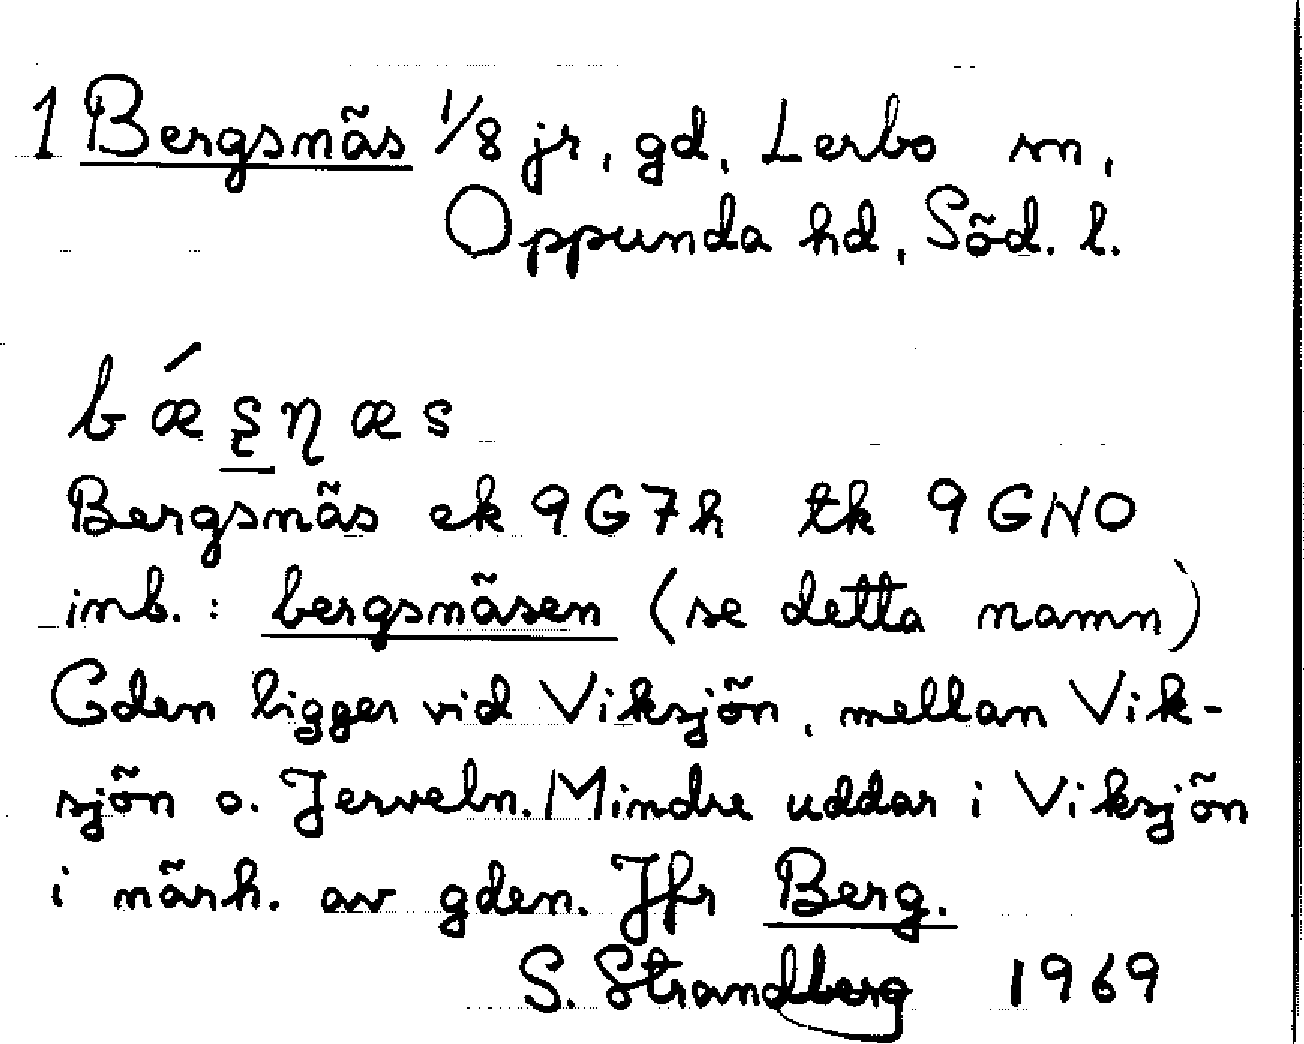 1 Bergsnäs 1/8 jr, gd, Lerbo sn,
Oppunda hd, Söd. l.
bǽʂɳæs
Bergsnäs ek 9G7h tk 9GNO
inb.: bergsnäsen (se detta namn)
Gden ligger vid Viksjön, mellan Vik-
sjön o. Jerveln. Mindre uddar i Viksjön
i närh. av gden. Jfr Berg.
S. Strandberg 1969